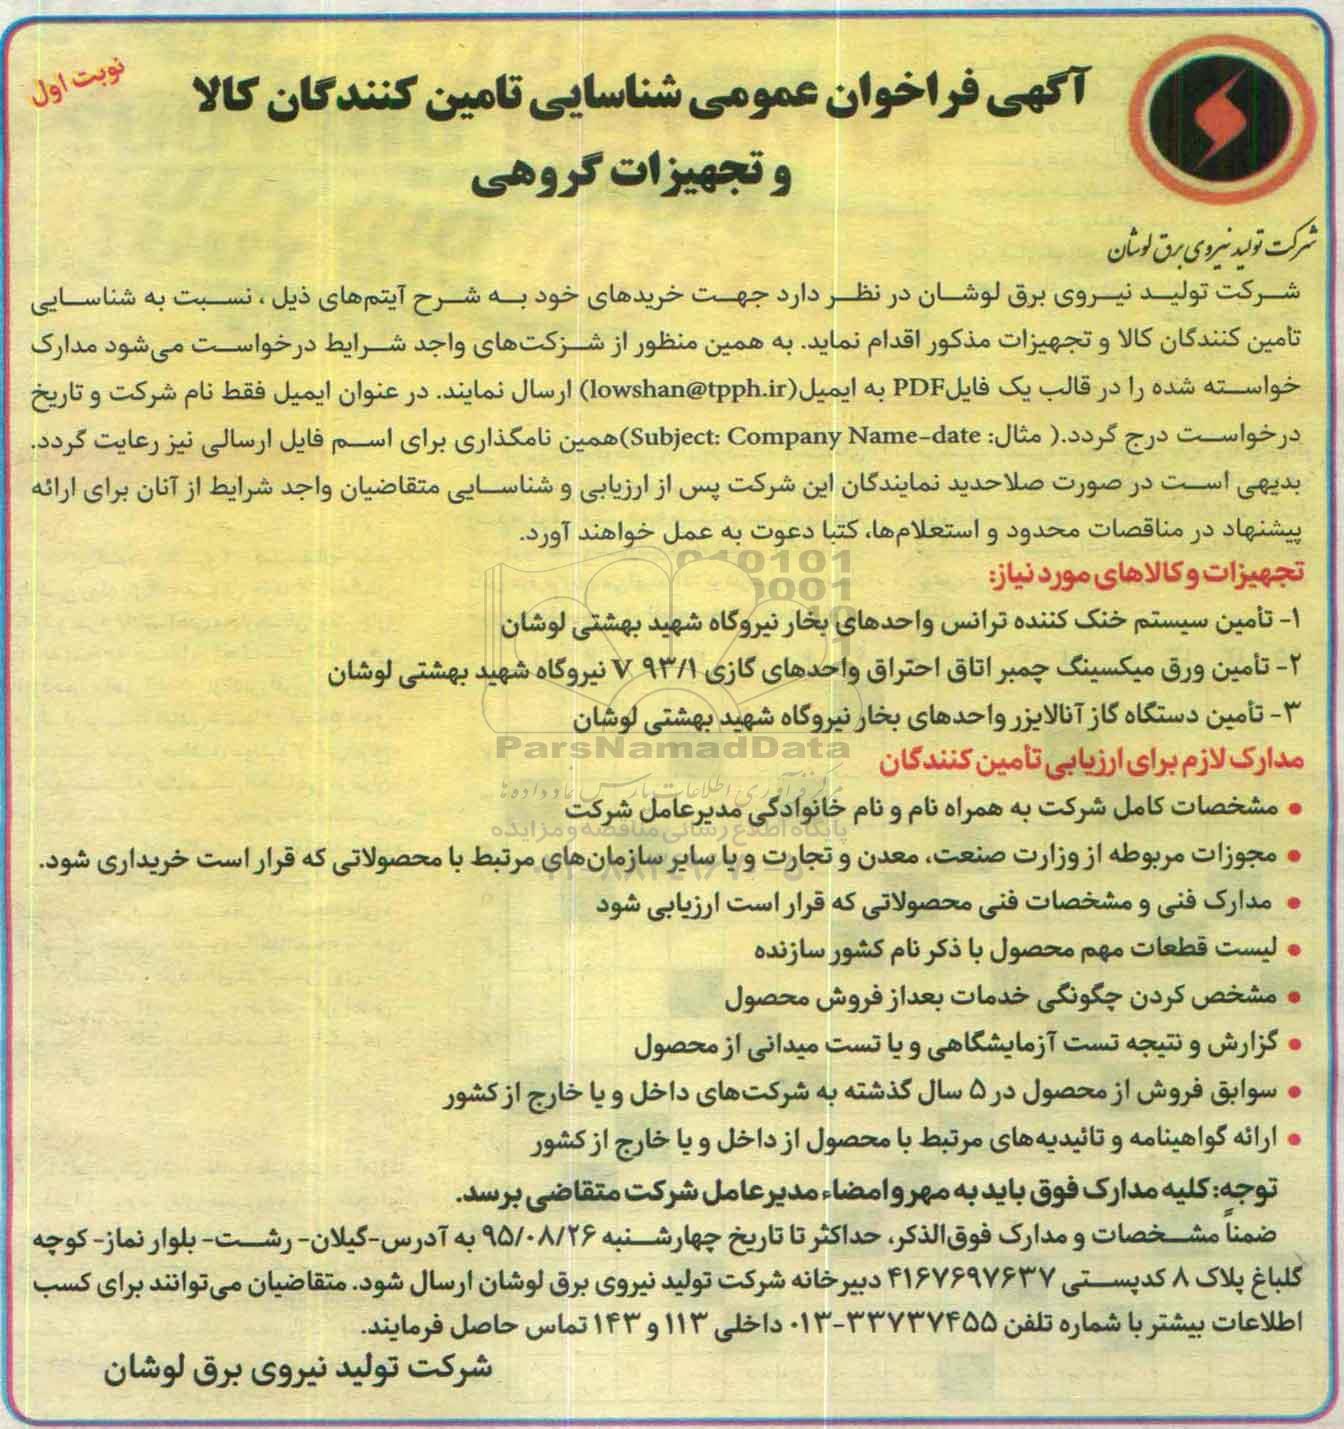 نوبت اول
آگهی فراخوان عمومی شناسایی تامین کنندگان کالا
و تجهیزات گروهی
شرکت تولید نیروی برق لوشان
شرکت تولید نیروی برق لوشان در نظر دارد جهت خریدهای خود به شرح آیتم‌های ذیل ، نسبت به شناسایی
تأمین کنندگان کالا و تجهیزات مذکور اقدام نماید. به همین منظور از شرکت‌های واجد شرایط درخواست می‌شود مدارک
خواسته شده را در قالب یک فایلPDF به ایمیل(lowshan@tpph.ir) ارسال نمایند. در عنوان ایمیل فقط نام شرکت و تاریخ
درخواست درج گردد.( مثال: Subject: Company Name-date)همین نامگذاری برای اسم فایل ارسالی نیز رعایت گردد.
بدیهی است در صورت صلاحدید نمایندگان این شرکت پس از ارزیابی و شناسایی متقاضیان واجد شرایط از آنان برای ارائه
پیشنهاد در مناقصات محدود و استعلام‌ها، کتبا دعوت به عمل خواهند آورد.
تجهیزات و کالاهای مورد نیاز:
۱- تأمین سیستم خنک کننده ترانس واحدهای بخار نیروگاه شهید بهشتی لوشان
۲- تأمین ورق میکسینگ چمبر اتاق احتراق واحدهای گازی V ۹۳/۱ نیروگاه شهید بهشتی لوشان
۳- تأمین دستگاه گاز آنالایزر واحدهای بخار نیروگاه شهید بهشتی لوشان
ParsNamadData
مدارک لازم برای ارزیابی تأمین کنندگان
مرکز فرآوری اطلاعات پارس نماد داده ها
• مشخصات کامل شرکت به همراه نام و نام خانوادگی مدیرعامل شرکت
پایگاه اطلاع رسانی مناقصه و مزایده
• مجوزات مربوطه از وزارت صنعت، معدن و تجارت و یا سایر سازمان‌های مرتبط با محصولاتی که قرار است خریداری شود.
• مدارک فنی و مشخصات فنی محصولاتی که قرار است ارزیابی شود
• لیست قطعات مهم محصول با ذکر نام کشور سازنده
• مشخص کردن چگونگی خدمات بعداز فروش محصول
• گزارش و نتیجه تست آزمایشگاهی و یا تست میدانی از محصول
• سوابق فروش از محصول در ۵ سال گذشته به شرکت‌های داخل و یا خارج از کشور
• ارائه گواهینامه و تائیدیه‌های مرتبط با محصول از داخل و یا خارج از کشور
توجه: کلیه مدارک فوق باید به مهر و امضاء مدیرعامل شرکت متقاضی برسد.
ضمناً مشخصات و مدارک فوق‌الذکر، حداکثر تا تاریخ چهارشنبه ۹۵/۰۸/۲۶ به آدرس-گیلان- رشت- بلوار نماز- کوچه
گلباغ پلاک ۸ کدپستی ۴۱۶۷۶۹۷۶۳۷ دبیرخانه شرکت تولید نیروی برق لوشان ارسال شود. متقاضیان می‌توانند برای کسب
اطلاعات بیشتر با شماره تلفن ۳۳۷۳۷۴۵۵-۰۱۳ داخلی ۱۱۳ و ۱۴۳ تماس حاصل فرمایند.
شرکت تولید نیروی برق لوشان